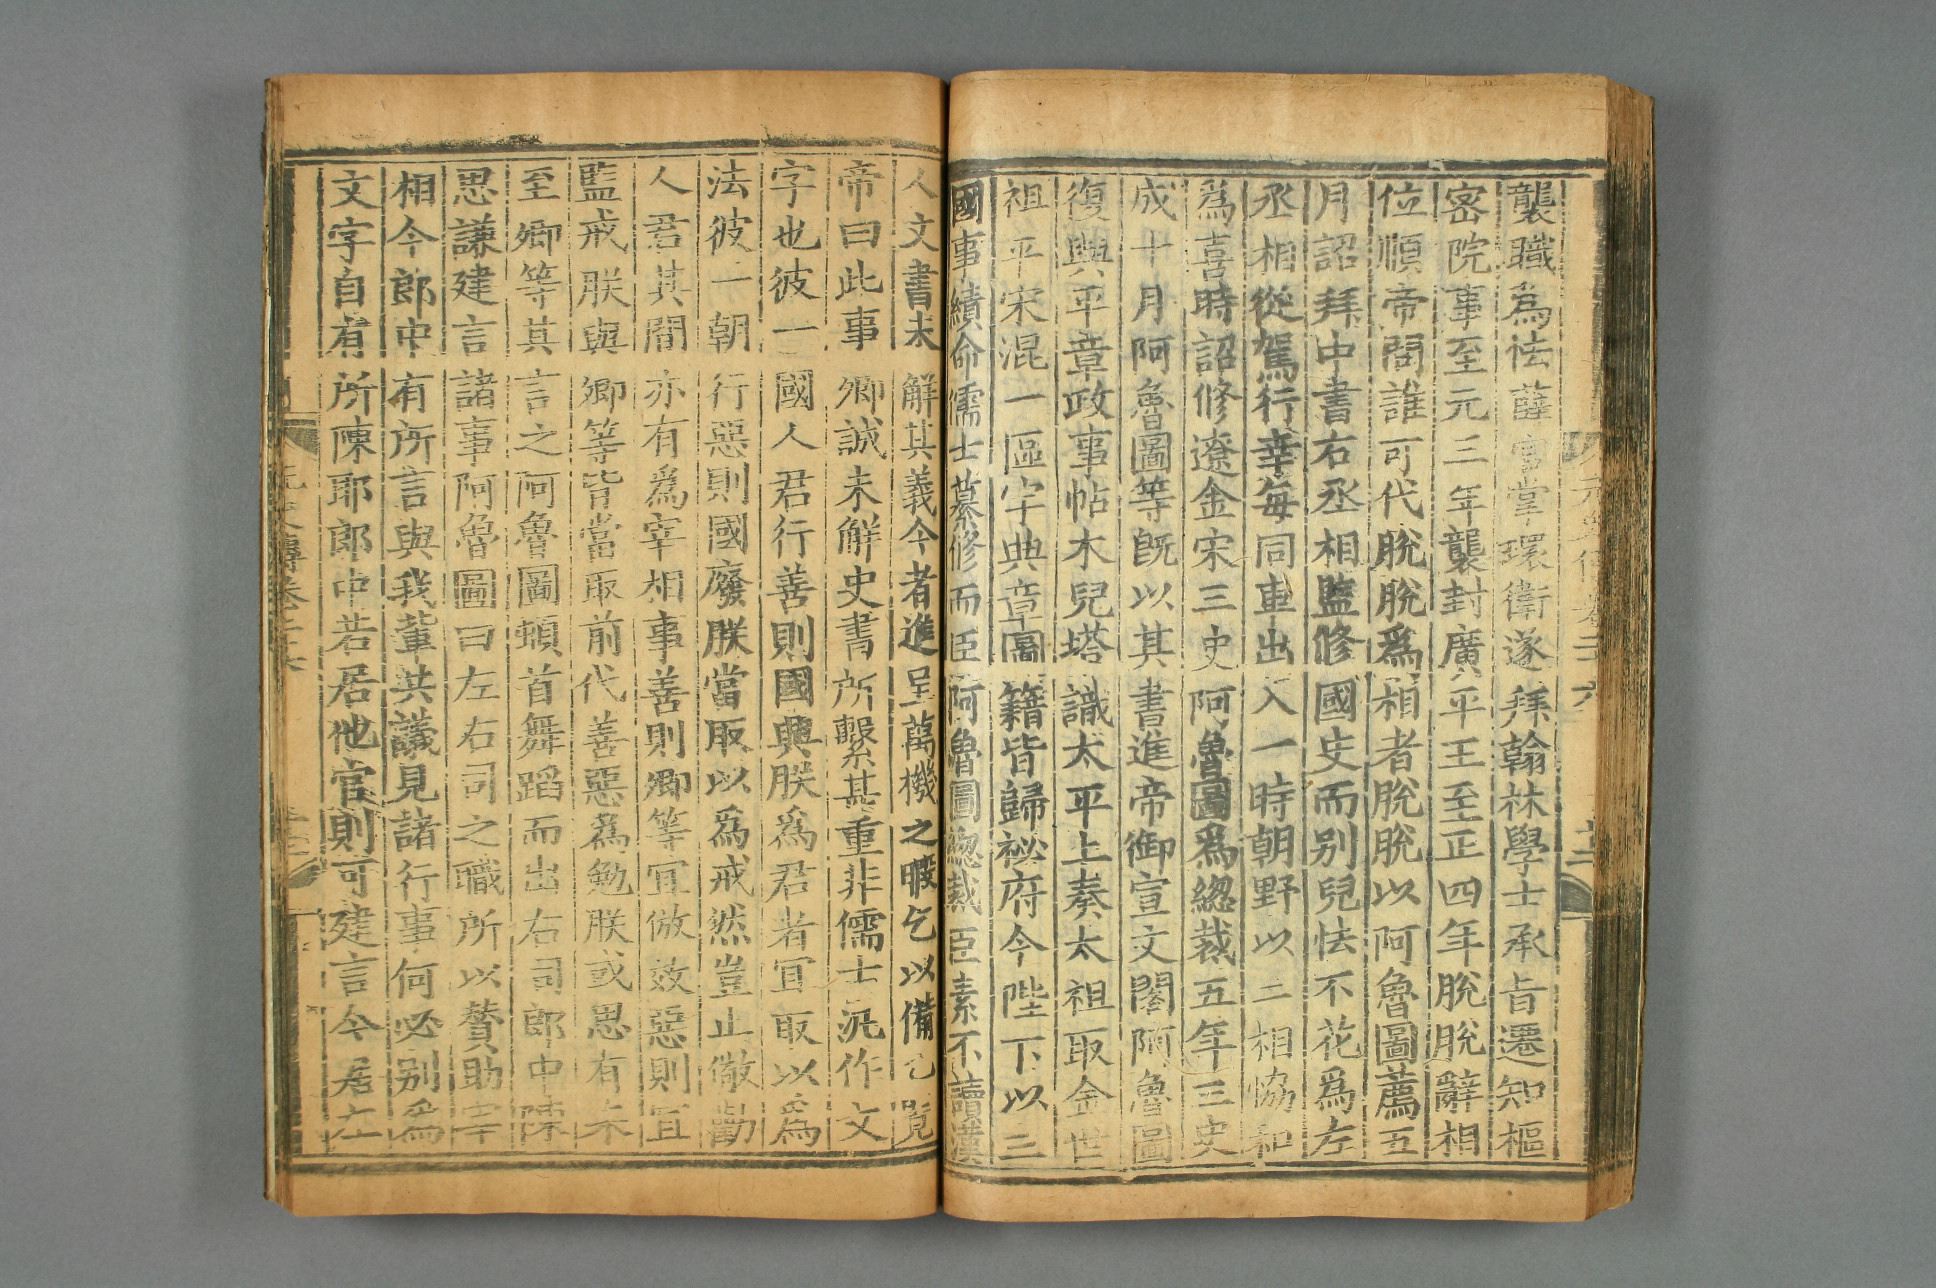 襲職爲怯薛官掌環衛遂拜翰林學士承旨遷知樞
密院事至元三年襲封廣平王至正四年脫脫辭相
位順帝問誰可代脫脫爲相者脫脫以阿魯圖薦五
月詔拜中書右丞相監修國史而別兒怯不花爲左
丞相從駕行幸每同車出入一時朝野以二相協和
爲喜時詔修遼金宋三史阿魯圖爲總裁五年三史
成十月阿魯圖等既以其書進帝御宣文閣阿魯圖
復與平章政事帖木兒塔識太平上奏太祖取金世
祖平宋混一區宇典章圖籍皆歸祕府今陛下以三
國事績命儒士纂修而臣阿魯圖總裁臣素不讀漢
人文書未解其義今者進呈萬機之暇乞以備乙覽
帝曰此事卿誠未解史書所繫甚重非儒士泛作文
字也彼一國人君行善則國興朕爲君者宜取以爲
法彼一朝行惡則國廢朕當取以爲戒然豈止儆勸
人君其間亦有爲宰相事善則卿等宜倣效惡則宜
監戒朕與卿等皆當取前代善惡爲勉朕或思有未
至卿等其言之阿魯圖頓首舞蹈而出右司郎中陳
思謙建言諸事阿魯圖曰左右司之職所以贊助宰
相今郎中有所言與我輩共議見諸行事何必別爲
文字自有所陳耶郎中若居他官則可建言今居左